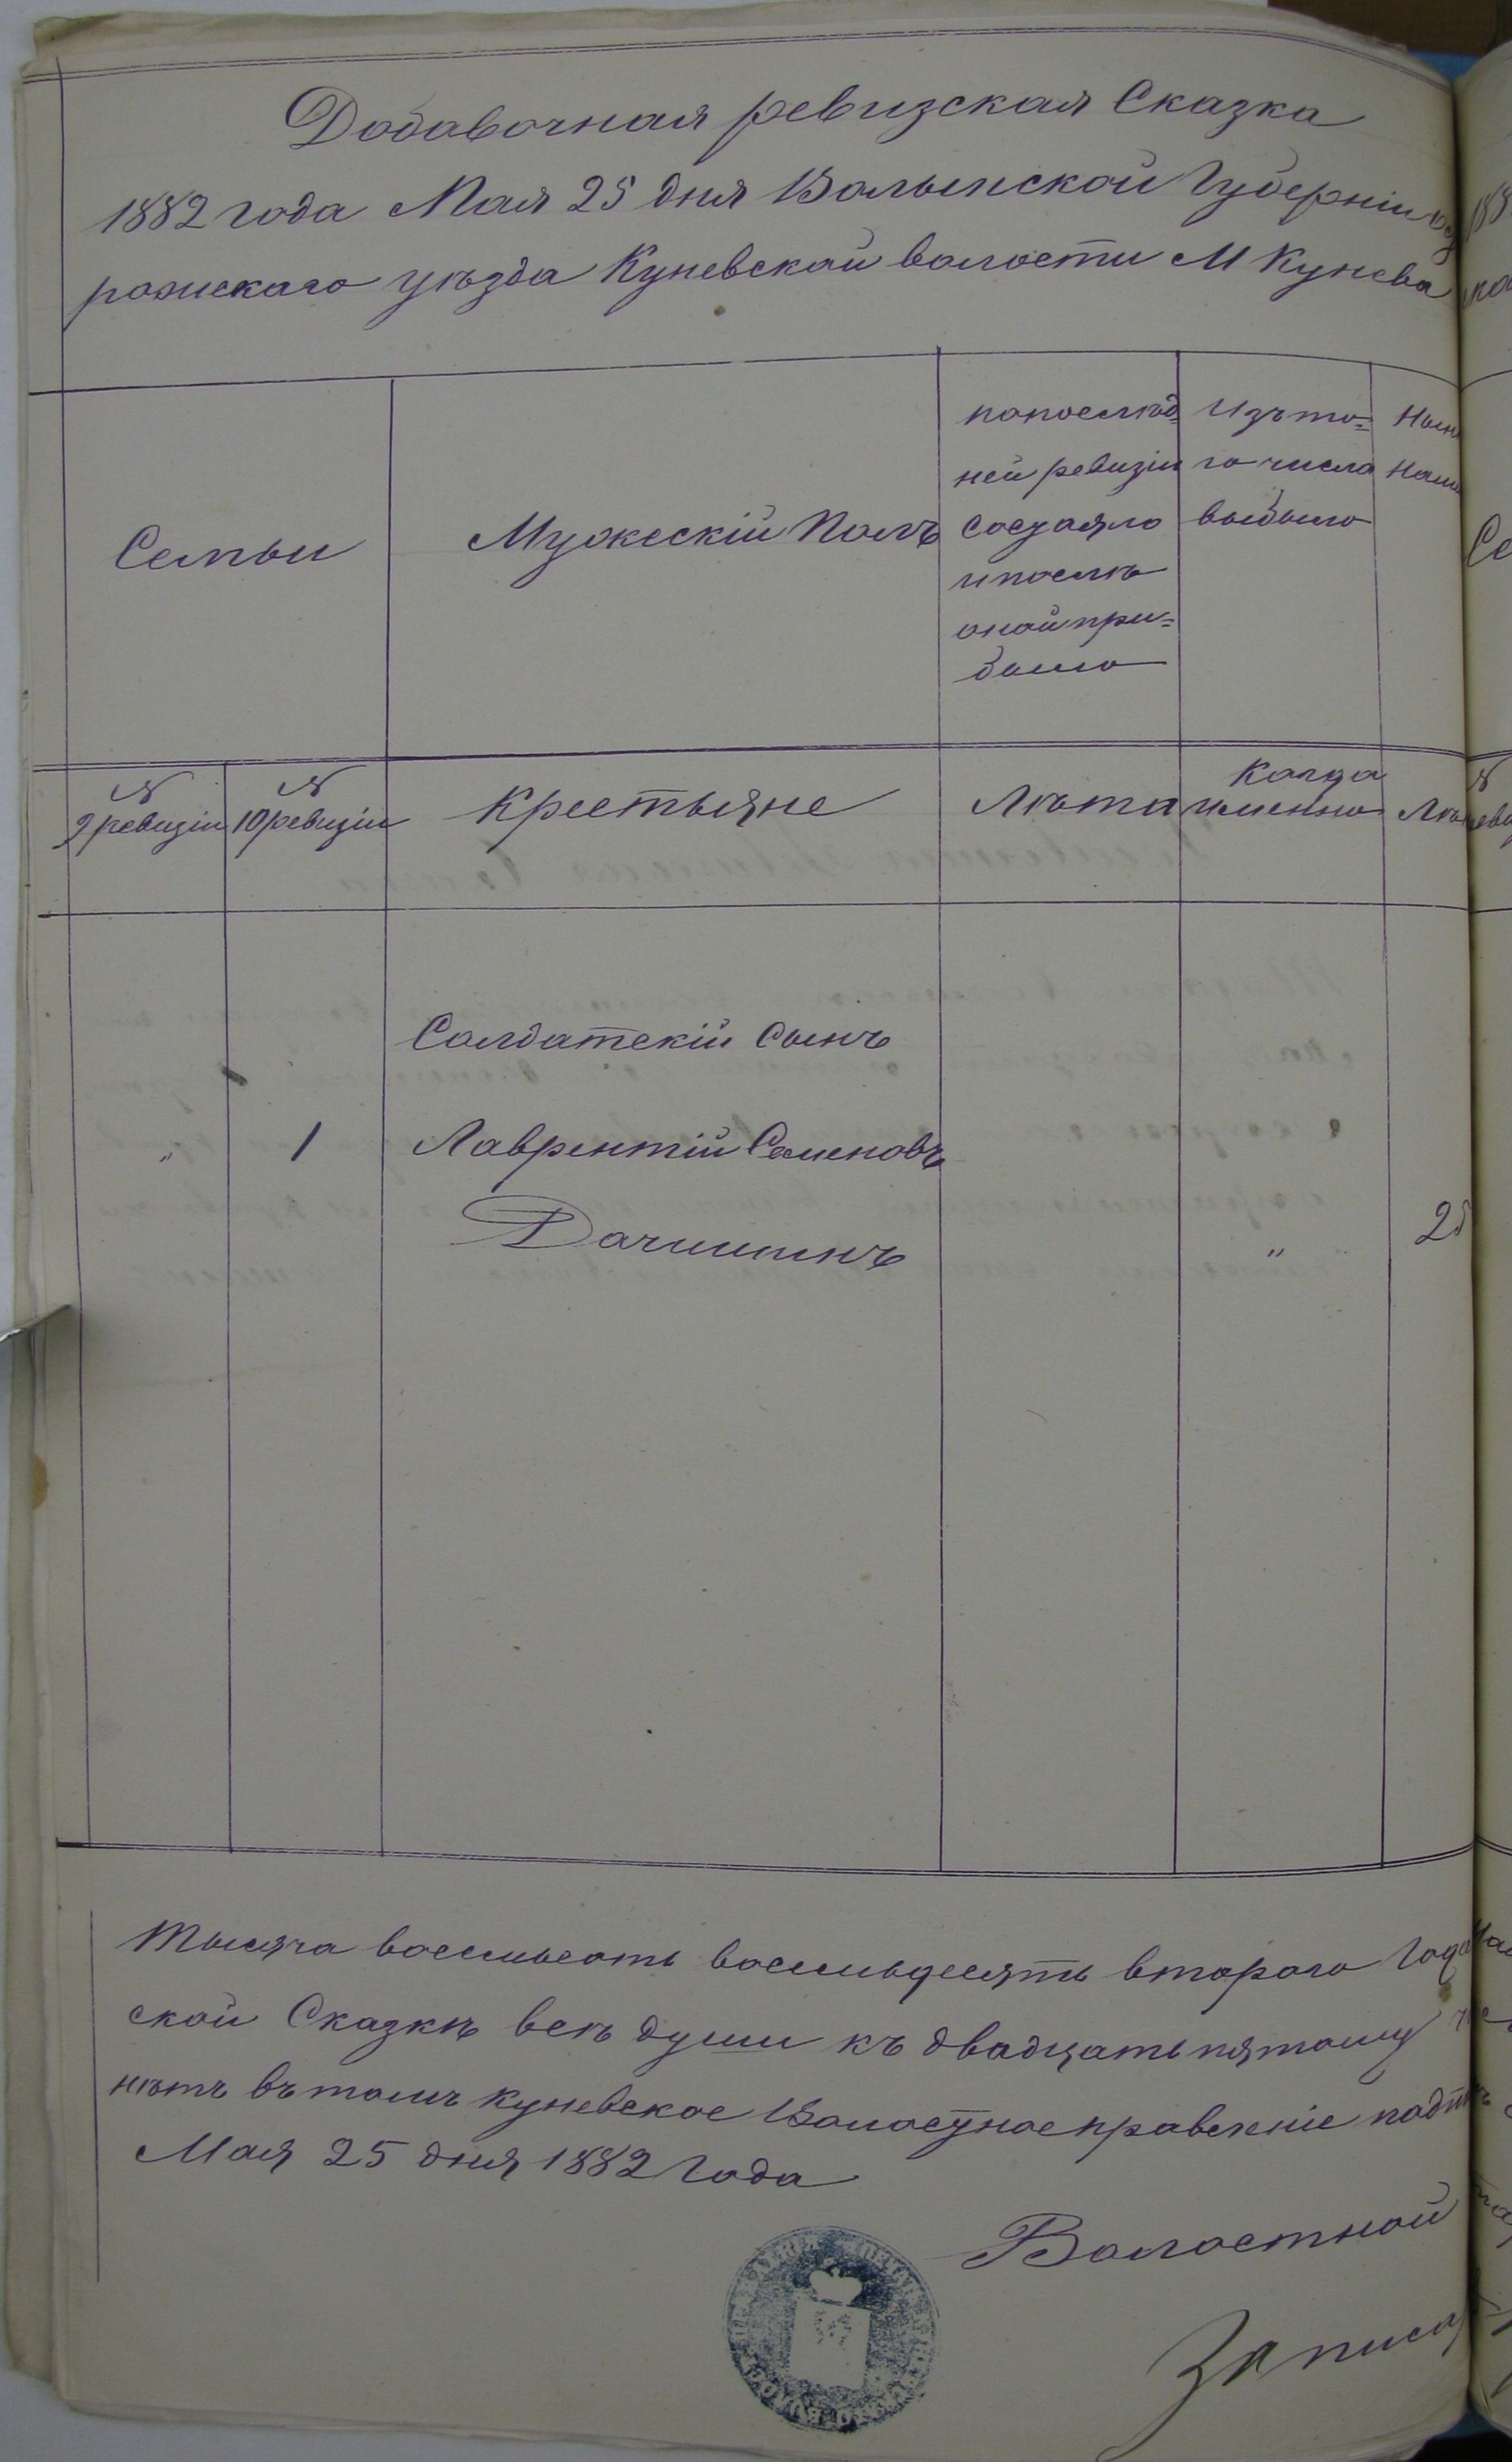 Добавочная ревизская Сказка
1882 года Мая 25 дня Волынской Губерніи
рожскаго уѣзда Куневской волости М Кунева
Семьи
Мужескій Полъ
попослѣд=
ней ревизіи
состояло
ипослѣ
онойпри=
было
Изъ то=
го числа
выбыло
№
9 ревизіи
№
10 ревизіи
Крестьяне
Лѣта
Когда
именно
Солдатскій Сынъ
" 1 Лаврентій Семеновъ
"
Тысяча восемьсотъ восемьдесятъ второго Года
ской Сказкѣ всѣ души къ двадцатьпятому
нѣтъ въ томъ Куневское Волостноеправленіе
Мая 25 дня 1882 Года
Волостной